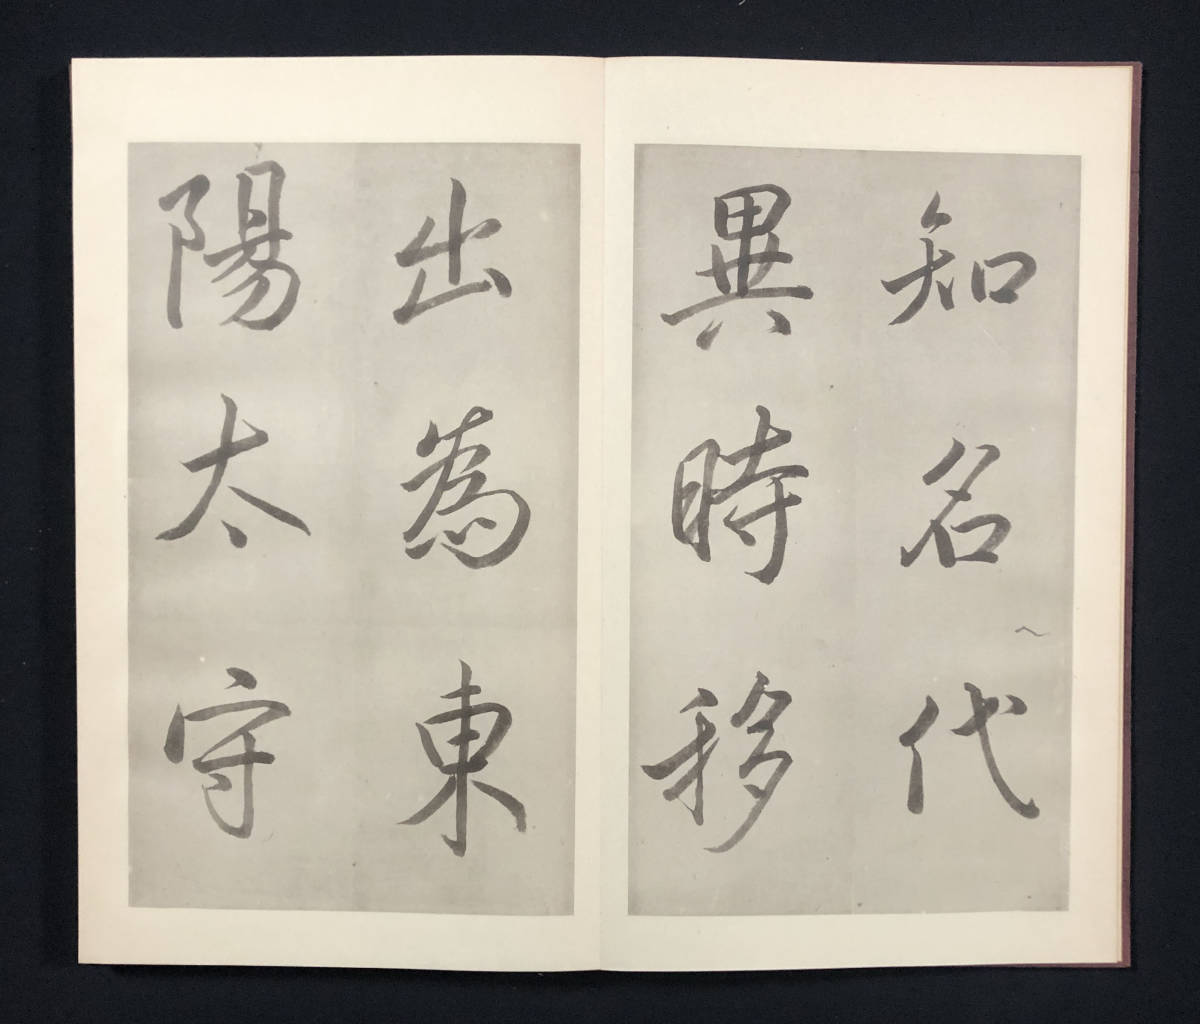 知名代
異時移
出為東
陽太守